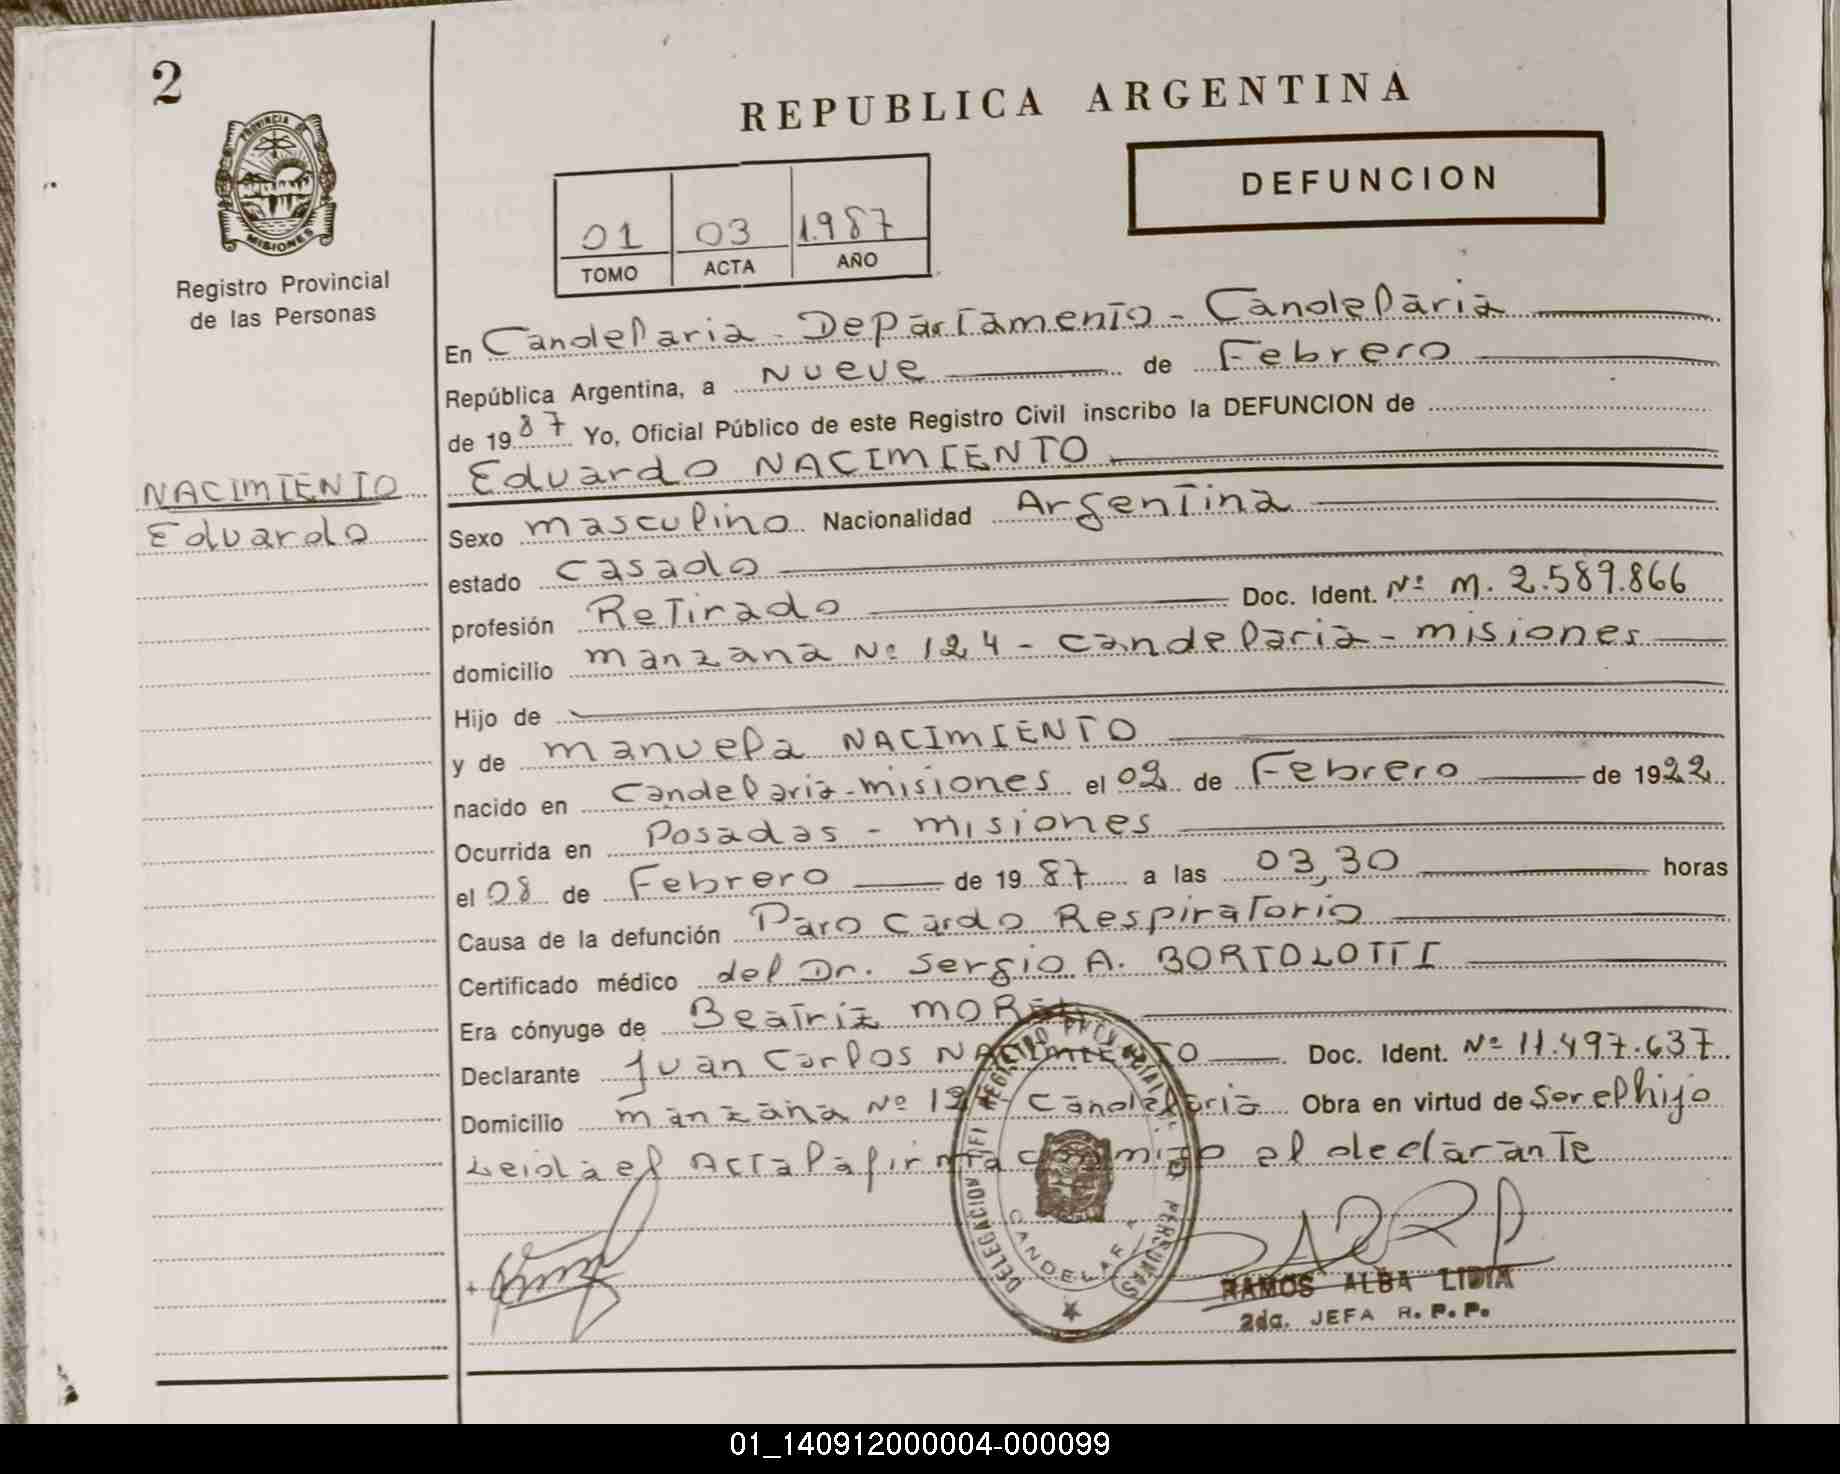 2
REPUBLICA ARGENTINA
PROVINCIA DE
MISIONES
Registro Provincial
de las Personas
DEFUNCION
01 03 1.987
TOMO ACTA AÑO
En Candelaria - Departamento - Candelaria
República Argentina, a Nueve de Febrero
de 1987 Yo, Oficial Público de este Registro Civil inscribo la DEFUNCION de
Eduardo NACIMIENTO
NACIMIENTO
Eduardo
Sexo masculino Nacionalidad Argentina
estado casado
profesión Retirado Doc. Ident. Nº M. 2.589.866
domicilio manzana Nº 124 - Candelaria - misiones
Hijo de
y de manuela NACIMIENTO
nacido en Candelaria - misiones el 02 de Febrero de 1922
Ocurrida en Posadas - misiones
el 08 de Febrero de 1987 a las 03,30 horas
Causa de la defunción Paro Cardo Respiratorio
Certificado médico del Dr. Sergio A. BORTOLOTTI
Era cónyuge de Beatriz
Declarante Juan Carlos NACIMIENTO Doc. Ident. Nº 11.497.637
Domicilio manzana Nº Candelaria Obra en virtud de Ser el hijo
Leida el Acta la firma conmigo el declarante
DELEGACION DEL REGISTRO PROVINCIAL DE LAS PERSONAS
CANDELARIA
RAMOS ALBA LIDIA
2da. JEFA R. P. P.
01_140912000004-000099